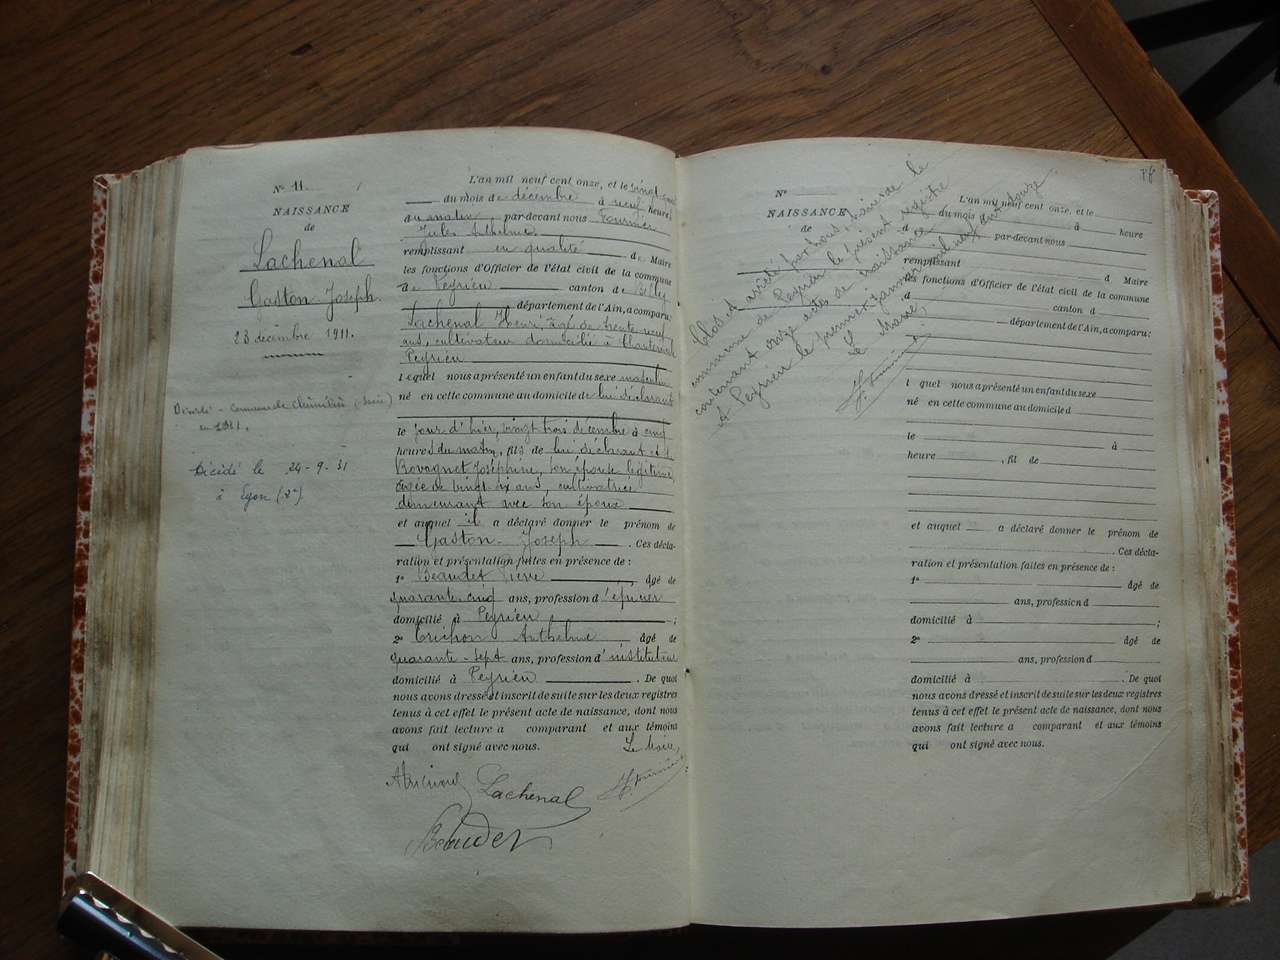 N° 11.
NAISSANCE
de
Lachenal
Gaston Joseph
23 décembre 1911.
Décédé le 24-9-31
à Lyon (2e)
L'an mil neuf cent onze, et le vingt-quatre
du mois de décembre à neuf heures
du matin, par-devant nous Fournier
Jules Anthelme
remplissant en qualité de Maire
les fonctions d'Officier de l'état civil de la commune
de Peyrieu canton de Belley
département de l'Ain, a comparu:
Lachenal Henri, âgé de trente neuf
ans, cultivateur domicilié à
Peyrieu
lequel nous a présenté un enfant du sexe masculin
né en cette commune au domicile de lui déclarant
le jour d'hier, vingt trois décembre à cinq
heures du matin, fils de lui déclarant et de
Bovagnet Joséphine, son épouse légitime,
âgée de vingt six ans, cultivatrice
demeurant avec son époux
et auquel il a déclaré donner le prénom de
Gaston Joseph. Ces décla-
ration et présentation faites en présence de :
1° Beaudet Pierre âgé de
quarante cinq ans, profession d'épicier
domicilié à Peyrieu ;
2° Anthelme âgé de
quarante-sept ans, profession d'instituteur
domicilié à Peyrieu. De quoi
nous avons dressé et inscrit de suite sur les deux registres
tenus à cet effet le présent acte de naissance, dont nous
avons fait lecture a comparant et aux témoins
qui ont signé avec nous.
Le Maire,
Lachenal
Beaudet
N°
NAISSANCE
de
Clos et arrêté par nous, maire de la
commune de Peyrieu le présent registre
contenant onze actes de naissance
A Peyrieu le premier janvier mil neuf cent douze
Le Maire,
L'an mil neuf cent onze, et le
du mois d à heure
d par-devant nous
remplissant d Maire
les fonctions d'Officier de l'état civil de la commune
d canton d
département de l'Ain, a comparu:
l quel nous a présenté un enfant du sexe
né en cette commune au domicile d
le à
heure , fil de
et auquel a déclaré donner le prénom de
Ces décla-
ration et présentation faites en présence de :
1° âgé de
ans, profession d
domicilié à ;
2° âgé de
ans, profession d
domicilié à . De quoi
nous avons dressé et inscrit de suite sur les deux registres
tenus à cet effet le présent acte de naissance, dont nous
avons fait lecture a comparant et aux témoins
qui ont signé avec nous.